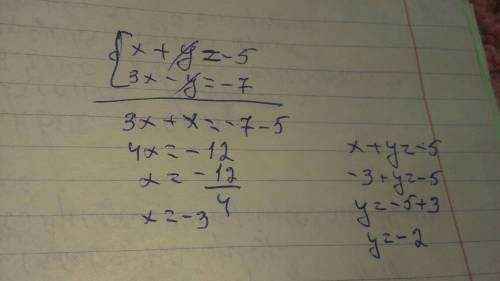 {x + y = -5
3x - y = -7
3x + x = -7 - 5
4x = -12
x = -12/4
x = -3
x + y = -5
-3 + y = -5
y = -5 + 3
y = -2